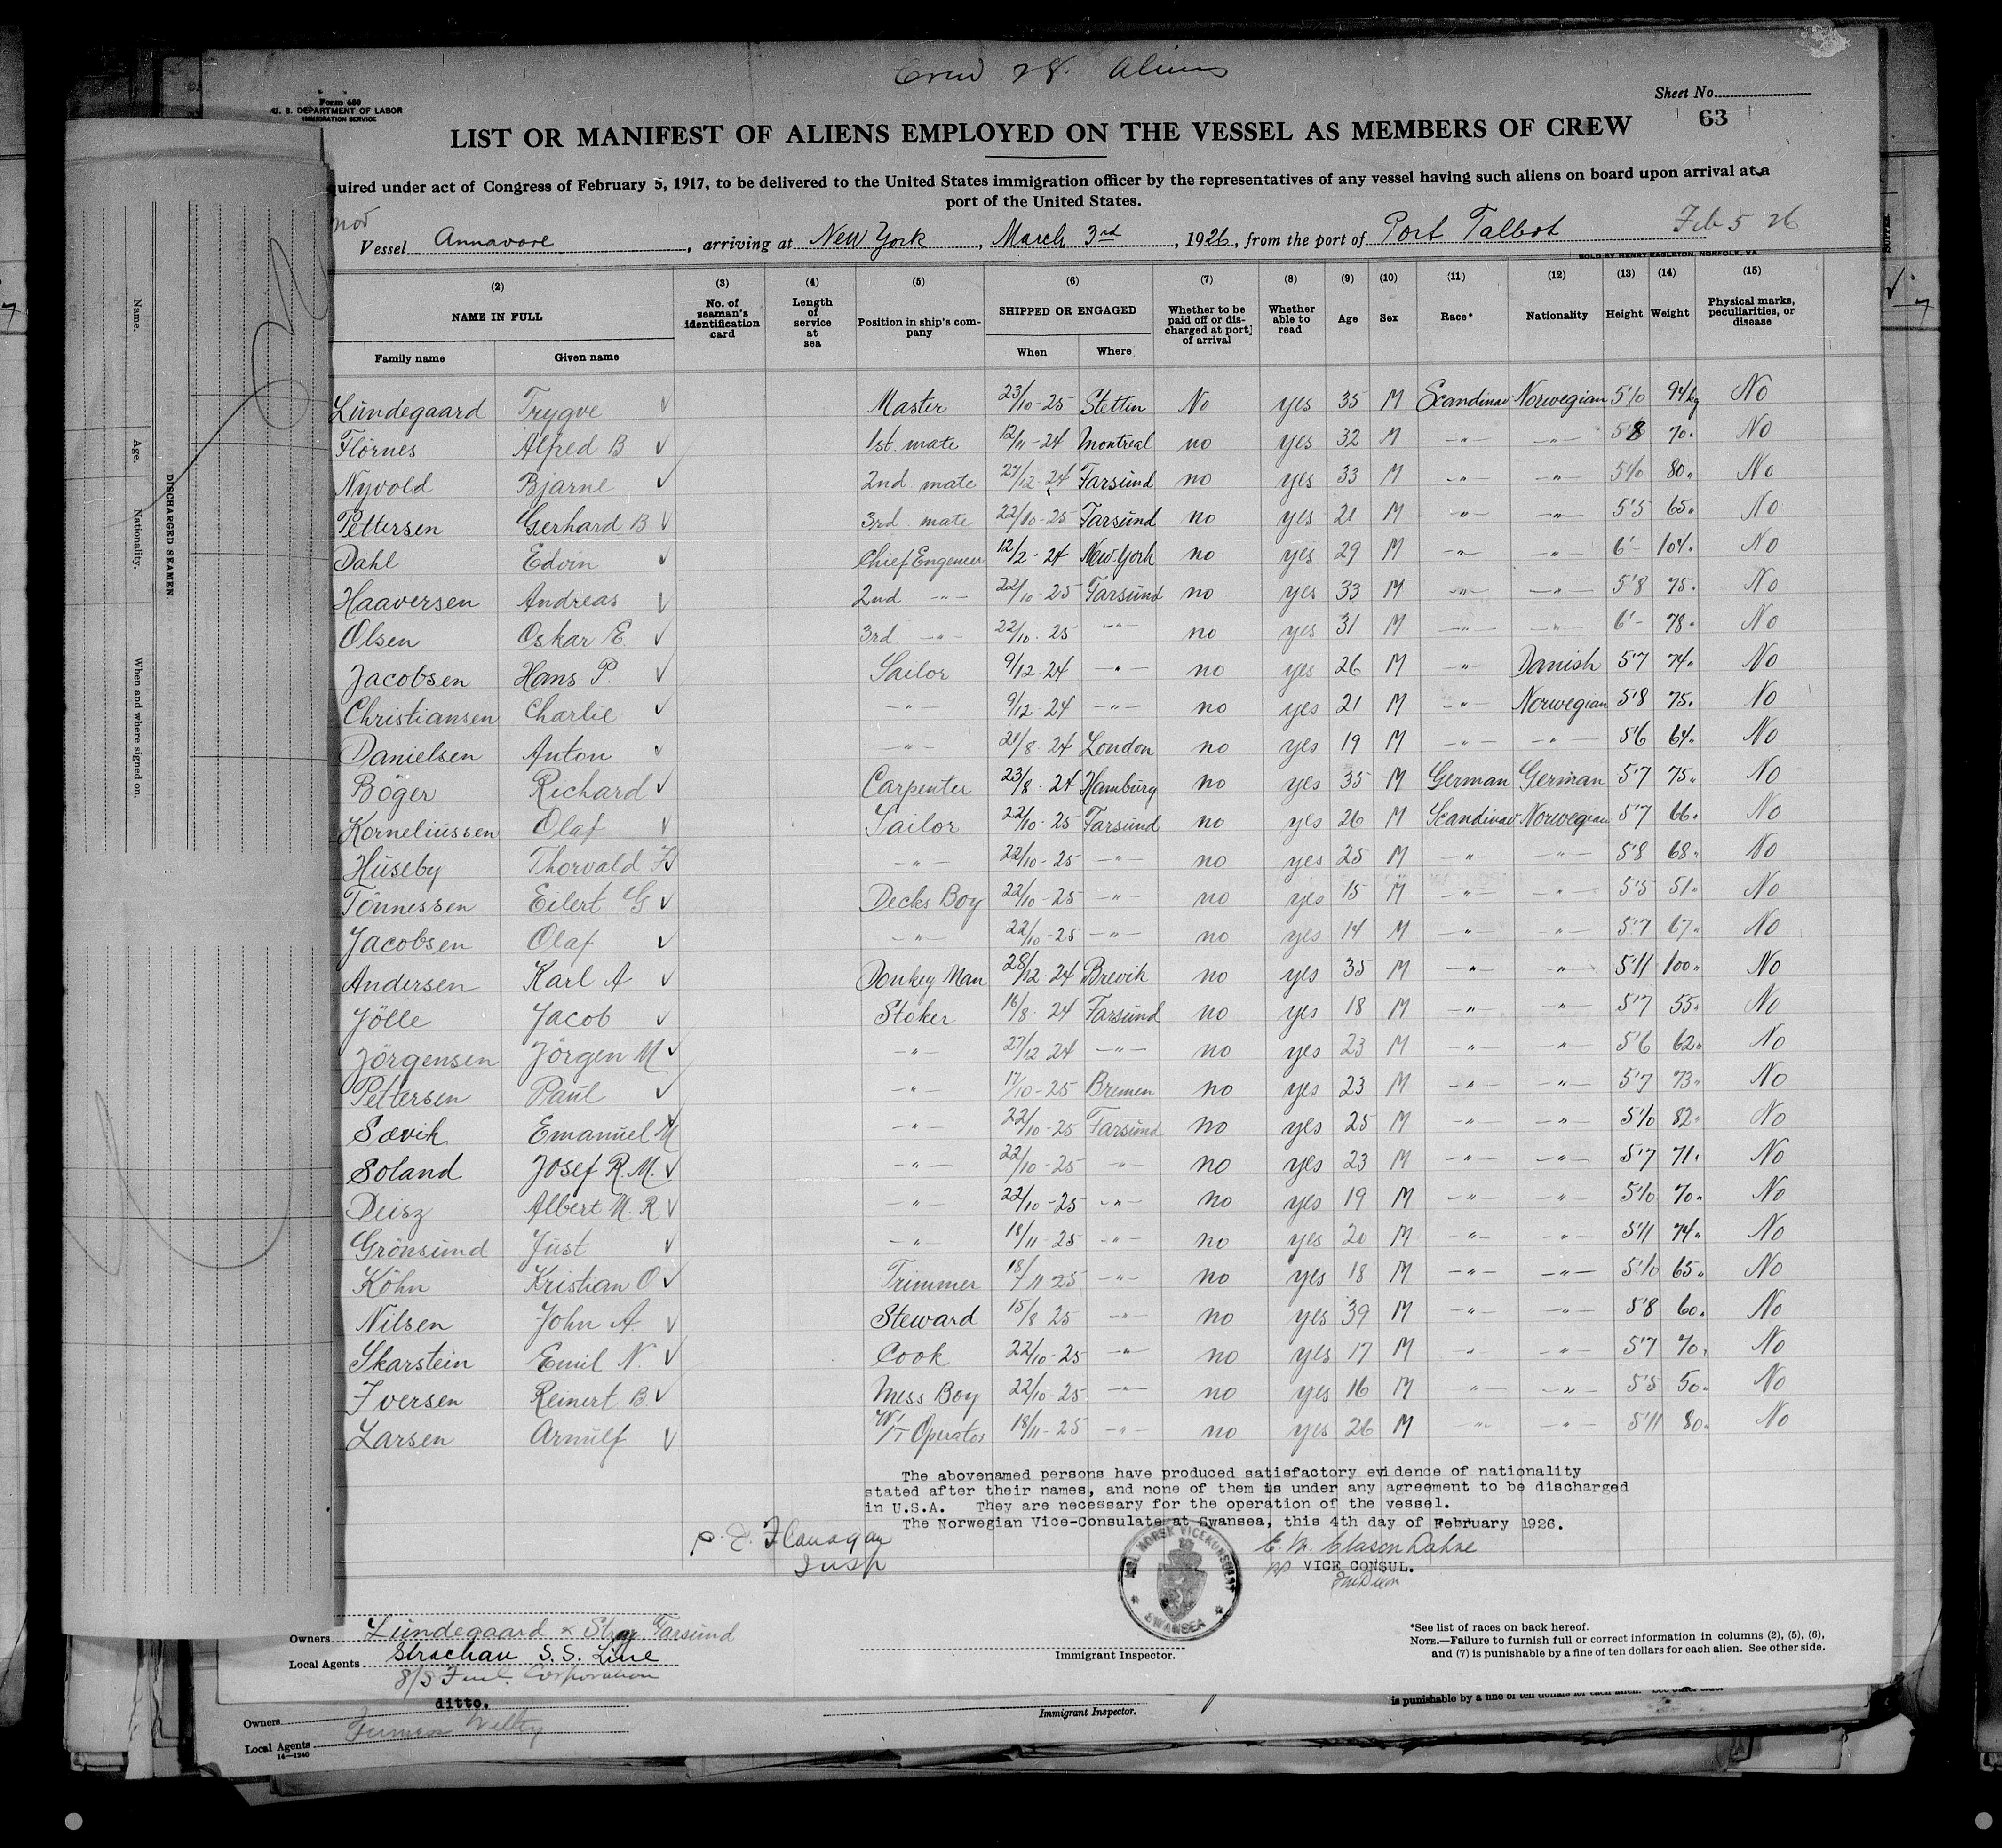 Crew 28. Aliens
Form 680
U. S. DEPARTMENT OF LABOR
IMMIGRATION SERVICE
Sheet No.
63
LIST OR MANIFEST OF ALIENS EMPLOYED ON THE VESSEL AS MEMBERS OF CREW
quired under act of Congress of February 5, 1917, to be delivered to the United States immigration officer by the representatives of any vessel having such aliens on board upon arrival at a
port of the United States.
nor
Vessel Annavore, arriving at New York, March 3rd, 1926, from the port of Port Talbot Feb 5 26
SOLD BY HENRY EAGLETON, NORFOLK, VA.
(2) (3) (4) (5) (6) (7) (8) (9) (10) (11) (12) (13) (14) (15)
NAME IN FULL No. of seaman's identification card Length of service at sea Position in ship's company SHIPPED OR ENGAGED Whether to be paid off or discharged at port of arrival Whether able to read Age Sex Race* Nationality Height Weight Physical marks, peculiarities, or disease
Family name Given name When Where
Lündegaard Trygve √ Master 23/10-25 Stettin No yes 35 M Scandinav Norwegian 5'10 94 kg No
Flörnes Alfred B √ 1st. mate 12/11-24 Montreal no yes 32 M -"- -"- 5'8 70. No
Nyvold Bjarne √ 2nd. mate 27/12-24 Farsünd no yes 33 M -"- -"- 5'10 80" No
Pettersen Gerhard B √ 3rd. mate 22/10-25 Farsünd no yes 21 M -"- -"- 5'5 65" No
Dahl Edvin √ Chief Engeneer 12/2-24 New York no yes 29 M -"- -"- 6'- 104. No
Haaversen Andreas √ 2nd. -"- 22/10-25 Farsünd no yes 33 M -"- -"- 5'8 75. No
Olsen Oskar E. √ 3rd. -"- 22/10.25 -"- no yes 31 M -"- -"- 6'- 78. No
Jacobsen Hans P. √ Sailor 9/12-24 -"- no yes 26 M -"- Danish 5'7 74" No
Christiansen Charlie √ -"- 9/12-24 -"- no yes 21 M -"- Norwegian 5'8 75. No
Danielsen Anton √ -"- 21/8-24 London no yes 19 M -"- -"- 5'6 64" No
Böger Richard √ Carpenter 23/8.24 Hamburg no yes 35 M German German 5'7 75" No
Korneliüssen Olaf √ Sailor 22/10-25 Farsünd no yes 26 M Scandinav Norwegian 5'7 66. No
Hüseby Thorvald √ -"- 22/10-25 -"- no yes 25 M -"- -"- 5'8 68" No
Tönnessen Eilert G √ Decks Boy 22/10-25 -"- no yes 15 M -"- -"- 5'5 51" No
Jacobsen Olaf √ -"- 22/10-25 -"- no yes 14 M -"- -"- 5'7 67" No
Andersen Karl A √ Donkey Man 28/12-24 Brevik no yes 35 M -"- -"- 5'11 100" No
Jölle Jacob √ Stoker 16/8-24 Farsünd no yes 18 M -"- -"- 5'7 55" No
Jörgensen Jörgen M √ -"- 27/12 24 -"- no yes 23 M -"- -"- 5'6 62" No
Pettersen Paül √ -"- 17/10-25 Bremen no yes 23 M -"- -"- 5'7 73" No
Sævik Emanüel M -"- 22/10-25 Farsünd no yes 25 M -"- -"- 5'10 82" No
Soland Josef R.M. √ -"- 22/10-25 -"- no yes 23 M -"- -"- 5'7 71. No
Deisz Albert M. R √ -"- 22/10-25 -"- no yes 19 M -"- -"- 5'10 70" No
Grönsünd Jüst √ -"- 18/11-25 -"- no yes 20 M -"- -"- 5'11 74" No
Köhn Kristian O √ Trimmer 18/11 25 -"- no yes 18 M -"- -"- 5'10 65" No
Nilsen John A. √ Steward 15/8 25 -"- no yes 39 M -"- -"- 5'8 60. No
Skarstein Emil N. √ Cook 22/10-25 -"- no yes 17 M -"- -"- 5'7 70. No
Iversen Reinert B. √ Mess Boy 22/10-25 -"- no yes 16 M -"- -"- 5'5 50. No
Larsen Arnülf √ W/T Operator 18/11-25 -"- no yes 26 M -"- -"- 5'11 80. No
The abovenamed persons have produced satisfactory evidence of nationality
stated after their names, and none of them is under any agreement to be discharged
in U.S.A. They are necessary for the operation of the vessel.
The Norwegian Vice-Consulate at Swansea, this 4th day of February 1926.
P. E. Flanagan
Insp
KGL. NORSK VICEKONSULAT
SWANSEA
E. M. Clason Dahne
pp VICE CONSUL.
Owners Lündegaard & Farsünd
Local Agents Strachan S.S. Line
S/S Fuel Corporation
Immigrant Inspector.
*See list of races on back hereof.
NOTE.—Failure to furnish full or correct information in columns (2), (5), (6),
and (7) is punishable by a fine of ten dollars for each alien. See other side.
ditto.
Owners
Local Agents
14—1240
Immigrant Inspector.
is punishable by a fine of ten dollars for each alien.
Name.
Age.
Nationality.
When and where signed on.
DISCHARGED SEAMEN.